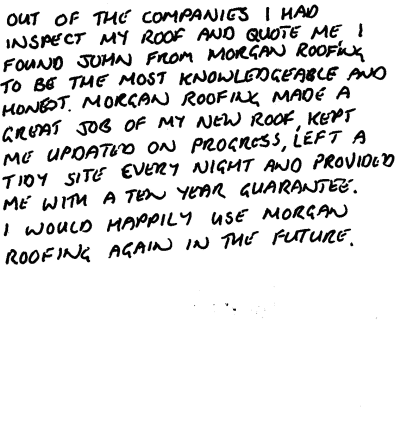 OUT OF THE COMPANIES I HAD
INSPECT MY ROOF AND QUOTE ME I
FOUND JOHN FROM MORGAN ROOFING
TO BE THE MOST KNOWLEDGEABLE AND
HONEST. MORGAN ROOFING MADE A
GREAT JOB OF MY NEW ROOF, KEPT
ME UPDATED ON PROGRESS, LEFT A
TIDY SITE EVERY NIGHT AND PROVIDED
ME WITH A TEN YEAR GUARANTEE.
I WOULD HAPPILY USE MORGAN
ROOFING AGAIN IN THE FUTURE.